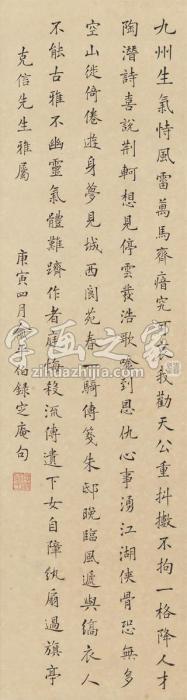 九州生氣恃風雷萬馬齊瘖究可哀我勸天公重抖擻不拘一格降人才
陶潛詩喜說荊軻想見停雲發浩歌吟到恩仇心事湧江湖俠骨恐無多
空山徙倚倦遊身夢見城西閬苑春一騎傳箋朱邸晚臨風遞與縞衣人
不能古雅不幽靈氣體難躋作者庭悔殺流傳遺下女自障紈扇過旗亭
克信先生雅屬
庚寅四月俞平伯錄定庵句
字画之家
www.zihuazhijia.com